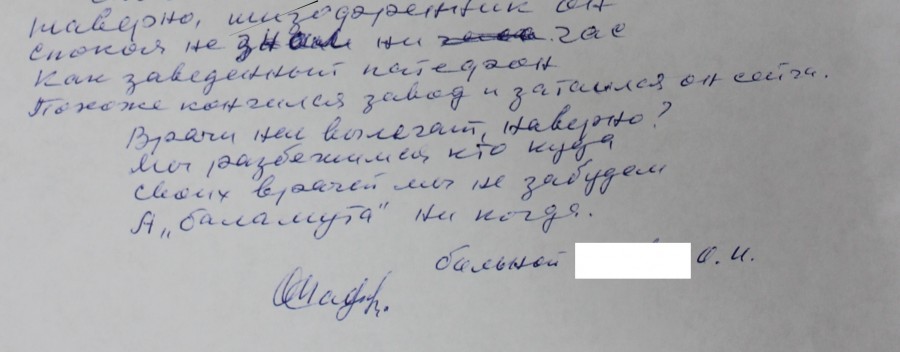 наверно, шизодаренник он
спокоя не знал ни час
Как заведенный патефон
Похоже кончился завод и затаился он сейча.
Врачи нас вылечат, наверно?
Мы разбежимся кто куда
Своих врачей мы не забудем
А „баламута" ни когда.
больной О. И.